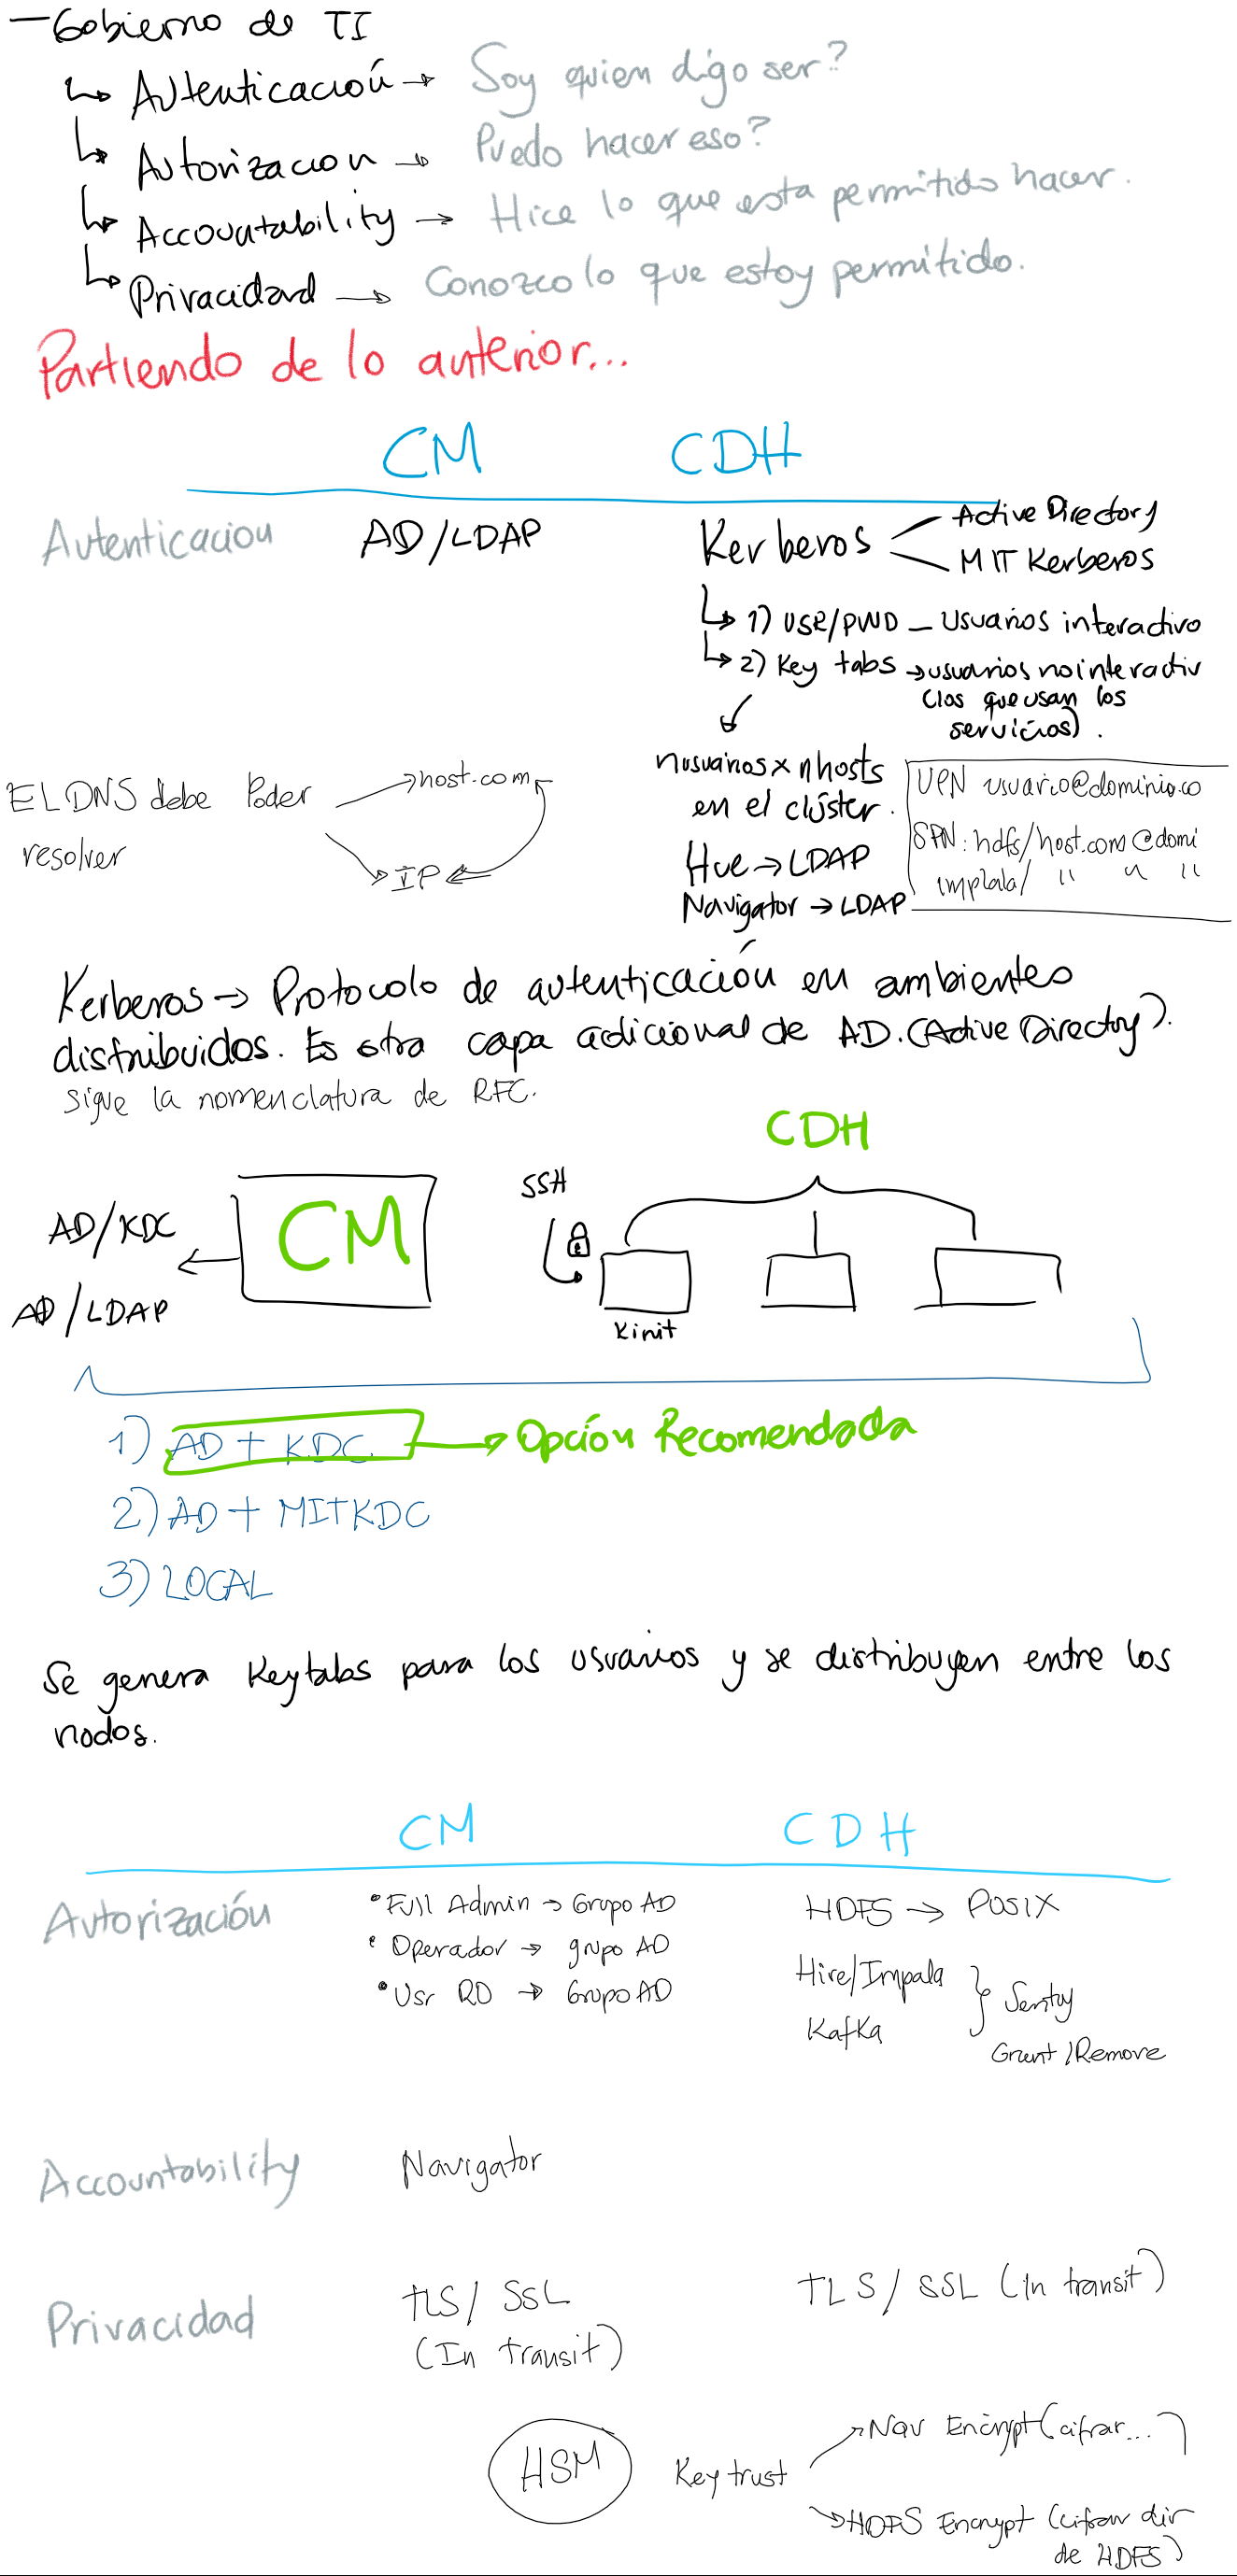 - Gobierno de TI
↳ Autenticación → Soy quien digo ser?
↳ Autorizacion → Puedo hacer eso?
↳ Accountability → Hice lo que esta permitido hacer.
↳ Privacidad → Conozco lo que estoy permitido.
Partiendo de lo anterior...
CM CDH
Autenticacion AD/LDAP Kerberos
Active Directory
MIT Kerberos
↳ 1) USR/PWD - Usuarios interactivo
↳ 2) Key tabs → usuarios no interactiv
(los que usan los
servicios).
nusuarios x nhosts
en el clúster.
Hue → LDAP
Navigator → LDAP
UPN usuario@dominio.co
SPN: hdfs/host.com@domi
implala/ " " "
EL DNS debe Poder
resolver
host.com
IP
Kerberos → Protocolo de autenticación en ambientes
distribuidos. Es otra capa adicional de AD. (Active Directoy).
sigue la nomenclatura de RFC.
CDH
SSH
CM
AD/KDC
AD/LDAP
Kinit
1) AD + KDC → Opción Recomendada
2) AD + MITKDC
3) LOCAL
Se genera Keytabs para los usuarios y se distribuyen entre los
nodos.
CM CDH
Autorización
• Full Admin → Grupo AD
• Operador → grupo AD
• Usr RO → Grupo AD
HDFS → POSIX
Hive/Impala
Kafka
Sentry
Grant/Remove
Accountability Navigator
Privacidad TLS/SSL
(In transit)
TLS/SSL (In transit)
HSM Key trust
→ Nav Encrypt (cifrar...)
→ HDFS Encrypt (cifrar dir
de HDFS)